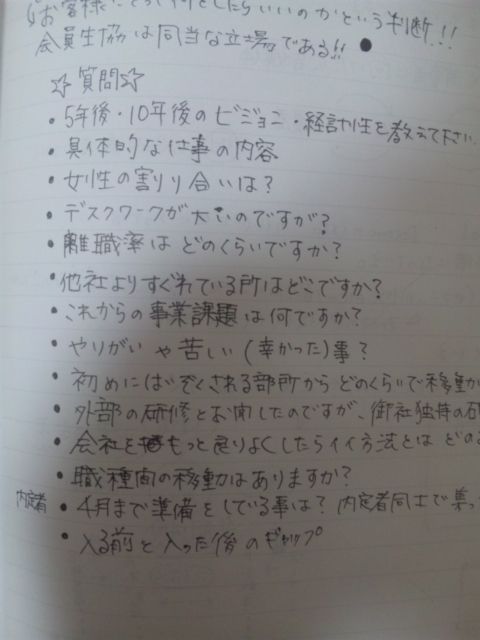 お客様にとって何をしたらいいのかという判断!!
会員生協は同当な立場である!!
☆質問☆
・5年後・10年後のビジョン・経計性を教えて下さい
・具体的な仕事の内容
・女性の割り合いは?
・デスクワークが大いのですが?
・離職率はどのくらいですか?
・他社よりすぐれている所はどこですか?
・これからの事業課題は何ですか?
・やりがいや苦しい(幸かった)事?
・初めにはぞくされる部所からどのくらいで移動か
・外部の研修とお聞したのですが、御社独特の
・会社をもっと良りよくしたらイイ方法とはどの
・職種間の移動はありますか?
内定者・4月まで準備をしている事は?内定者同士で集っ
・入る前と入った後のギャップ